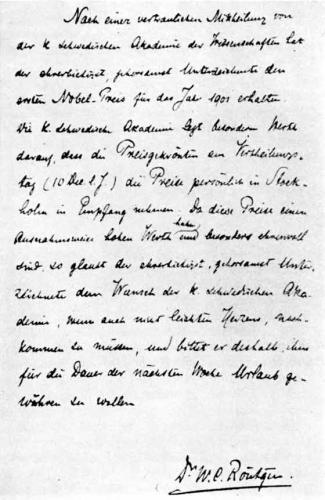 Nach einer vertraulichen Mittheilung von
der k. schwedischen Akademie der Wissenschaften hat
der ehrerbietigst, gehorsamst Unterzeichnete den
ersten Nobel-Preis für das Jahr 1901 erhalten.
Die k. schwedische Akademie legt besondern Werth
darauf, dass die Preisgekrönten am Vertheilungs-
tag (10 Dec. l. J.) die Preise persönlich in Stock-
holm in Empfang nehmen. Da diese Preise einen
Ausnahmsweise hohen Werth haben und besonders ehrenvoll
sind, so glaubt der ehrerbietigst, gehorsamst Unter-
zeichnete dem Wunsch der k. schwedischen Aka-
demie, wenn auch nicht leichten Herzens, nach-
kommen zu müssen, und bittet er deshalb, ihm
für die Dauer der nächsten Woche Urlaub ge-
währen zu wollen
Dr W. C. Röntgen.